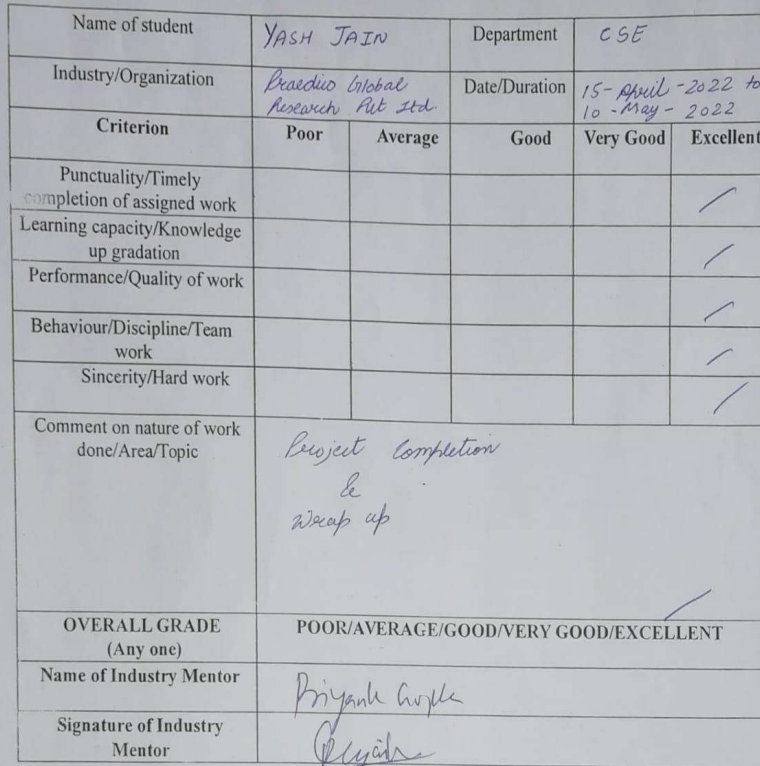 Name of student YASH JAIN Department CSE
Industry/Organization Praedico Global Date/Duration 15-April-2022 to
Research Pvt Ltd. 10-May-2022
Criterion Poor Average Good Very Good Excellent
Punctuality/Timely
completion of assigned work
Learning capacity/Knowledge
up gradation
Performance/Quality of work
Behaviour/Discipline/Team
work
Sincerity/Hard work
Comment on nature of work
done/Area/Topic
Project Completion
&
Wrap up
OVERALL GRADE POOR/AVERAGE/GOOD/VERY GOOD/EXCELLENT
(Any one)
Name of Industry Mentor Priyank
Signature of Industry
Mentor